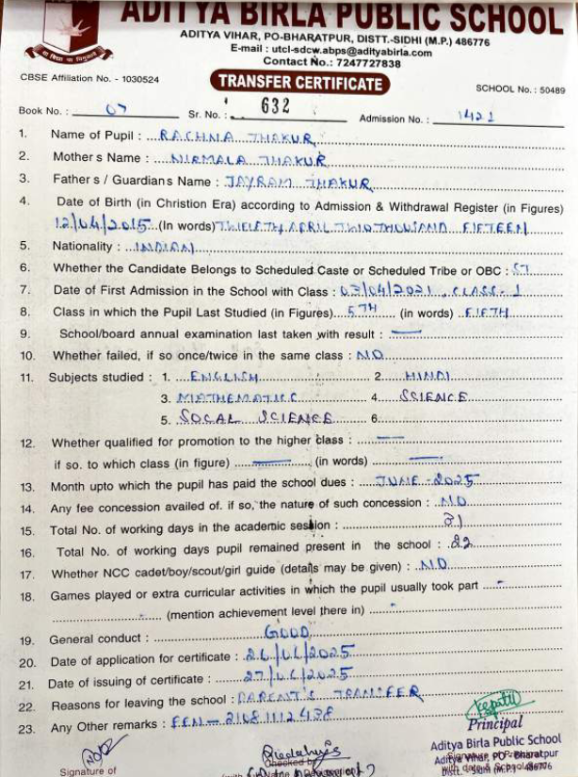 ADITYA BIRLA PUBLIC SCHOOL
ADITYA VIHAR, PO-BHARATPUR, DISTT.-SIDHI (M.P.) 486776
E-mail : utcl-sdcw.abps@adityabirla.com
Contact No.: 7247727838
CBSE Affiliation No. - 1030524
TRANSFER CERTIFICATE
SCHOOL No. : 50489
Book No. : 07 Sr. No. : 632 Admission No. : 1421
1. Name of Pupil : RACHNA THAKUR
2. Mother s Name : NIRMALA THAKUR
3. Father s / Guardians Name : JAYRAM THAKUR
4. Date of Birth (in Christion Era) according to Admission & Withdrawal Register (in Figures)
12/04/2015 (In words) TWELETH APRIL TWO THOUSAND FIFTEEN
5. Nationality : INDIAN
6. Whether the Candidate Belongs to Scheduled Caste or Scheduled Tribe or OBC : ST
7. Date of First Admission in the School with Class : 03/04/2021, CLASS-1
8. Class in which the Pupil Last Studied (in Figures) 5TH (in words) FIFTH
9. School/board annual examination last taken with result : —
10. Whether failed, if so once/twice in the same class : NO
11. Subjects studied : 1. ENGLISH 2. HINDI
3. MATHEMATICS 4. SCIENCE
5. SOCAL SCIENCE 6.
12. Whether qualified for promotion to the higher class : —
if so. to which class (in figure) — (in words) —
13. Month upto which the pupil has paid the school dues : JUNE-2025
14. Any fee concession availed of. if so, the nature of such concession : NO
15. Total No. of working days in the academic session : 31
16. Total No. of working days pupil remained present in the school : 22
17. Whether NCC cadet/boy/scout/girl guide (details may be given) : NO
18. Games played or extra curricular activities in which the pupil usually took part -
- (mention achievement level there in) -
19. General conduct : GOOD
20. Date of application for certificate : 26/06/2025
21. Date of issuing of certificate : 27/06/2025
22. Reasons for leaving the school : PARENT'S TRANSFER
23. Any Other remarks : PEN - 21081112438
Principal
Aditya Birla Public School
Aditya Vihar, PO- Bharatpur
Distt.- Sidhi (M.P.) 486776
Signature of
Checked by